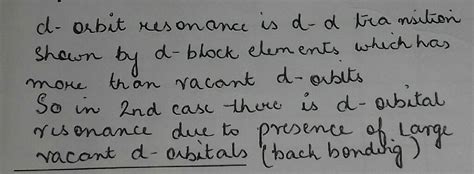 d- orbit resonance is d-d transition
shown by d-block elements which has
more than vacant d-orbits
So in 2nd case there is d-orbital
resonance due to presence of Large
vacant d-orbitals (back bonding)